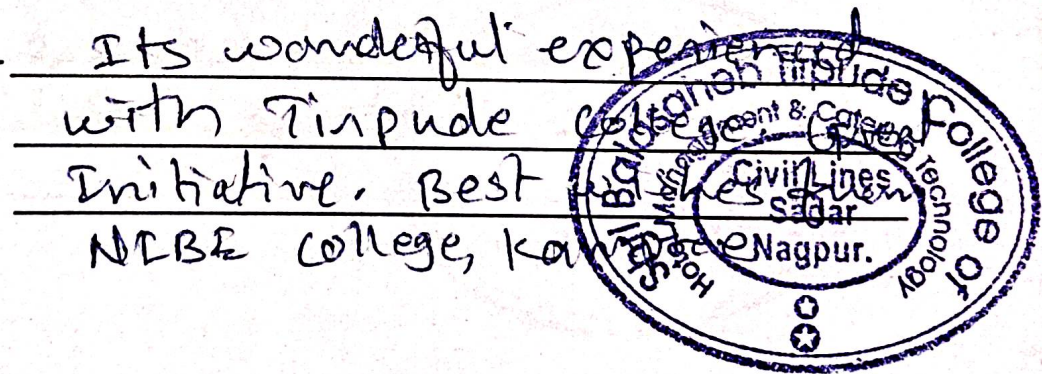 Its wonderful experienced
with Tirpude college. Great
Initiative. Best wishes from
NIBE college, Kamptee
Shri Balasaheb Tirpude College Of
Hotel Management & Catering Technology
Civil Lines
Sadar
Nagpur.